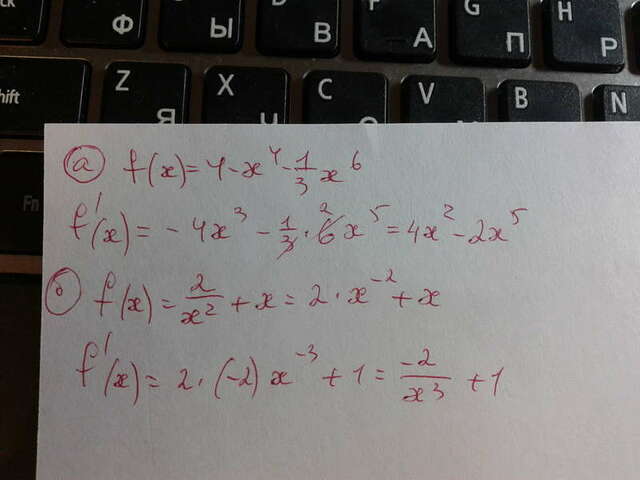 Ф Ы В А П Р
D F G H
Shift Z Я X Ч C С V М B И N
Fn
а) f(x)=4-x⁴-1/3x⁶
f'(x)=-4x³-1/3·6²x⁵=4x²-2x⁵
б) f(x)=2/x²+x=2·x⁻²+x
f'(x)=2·(-2)x⁻³+1=-2/x³+1